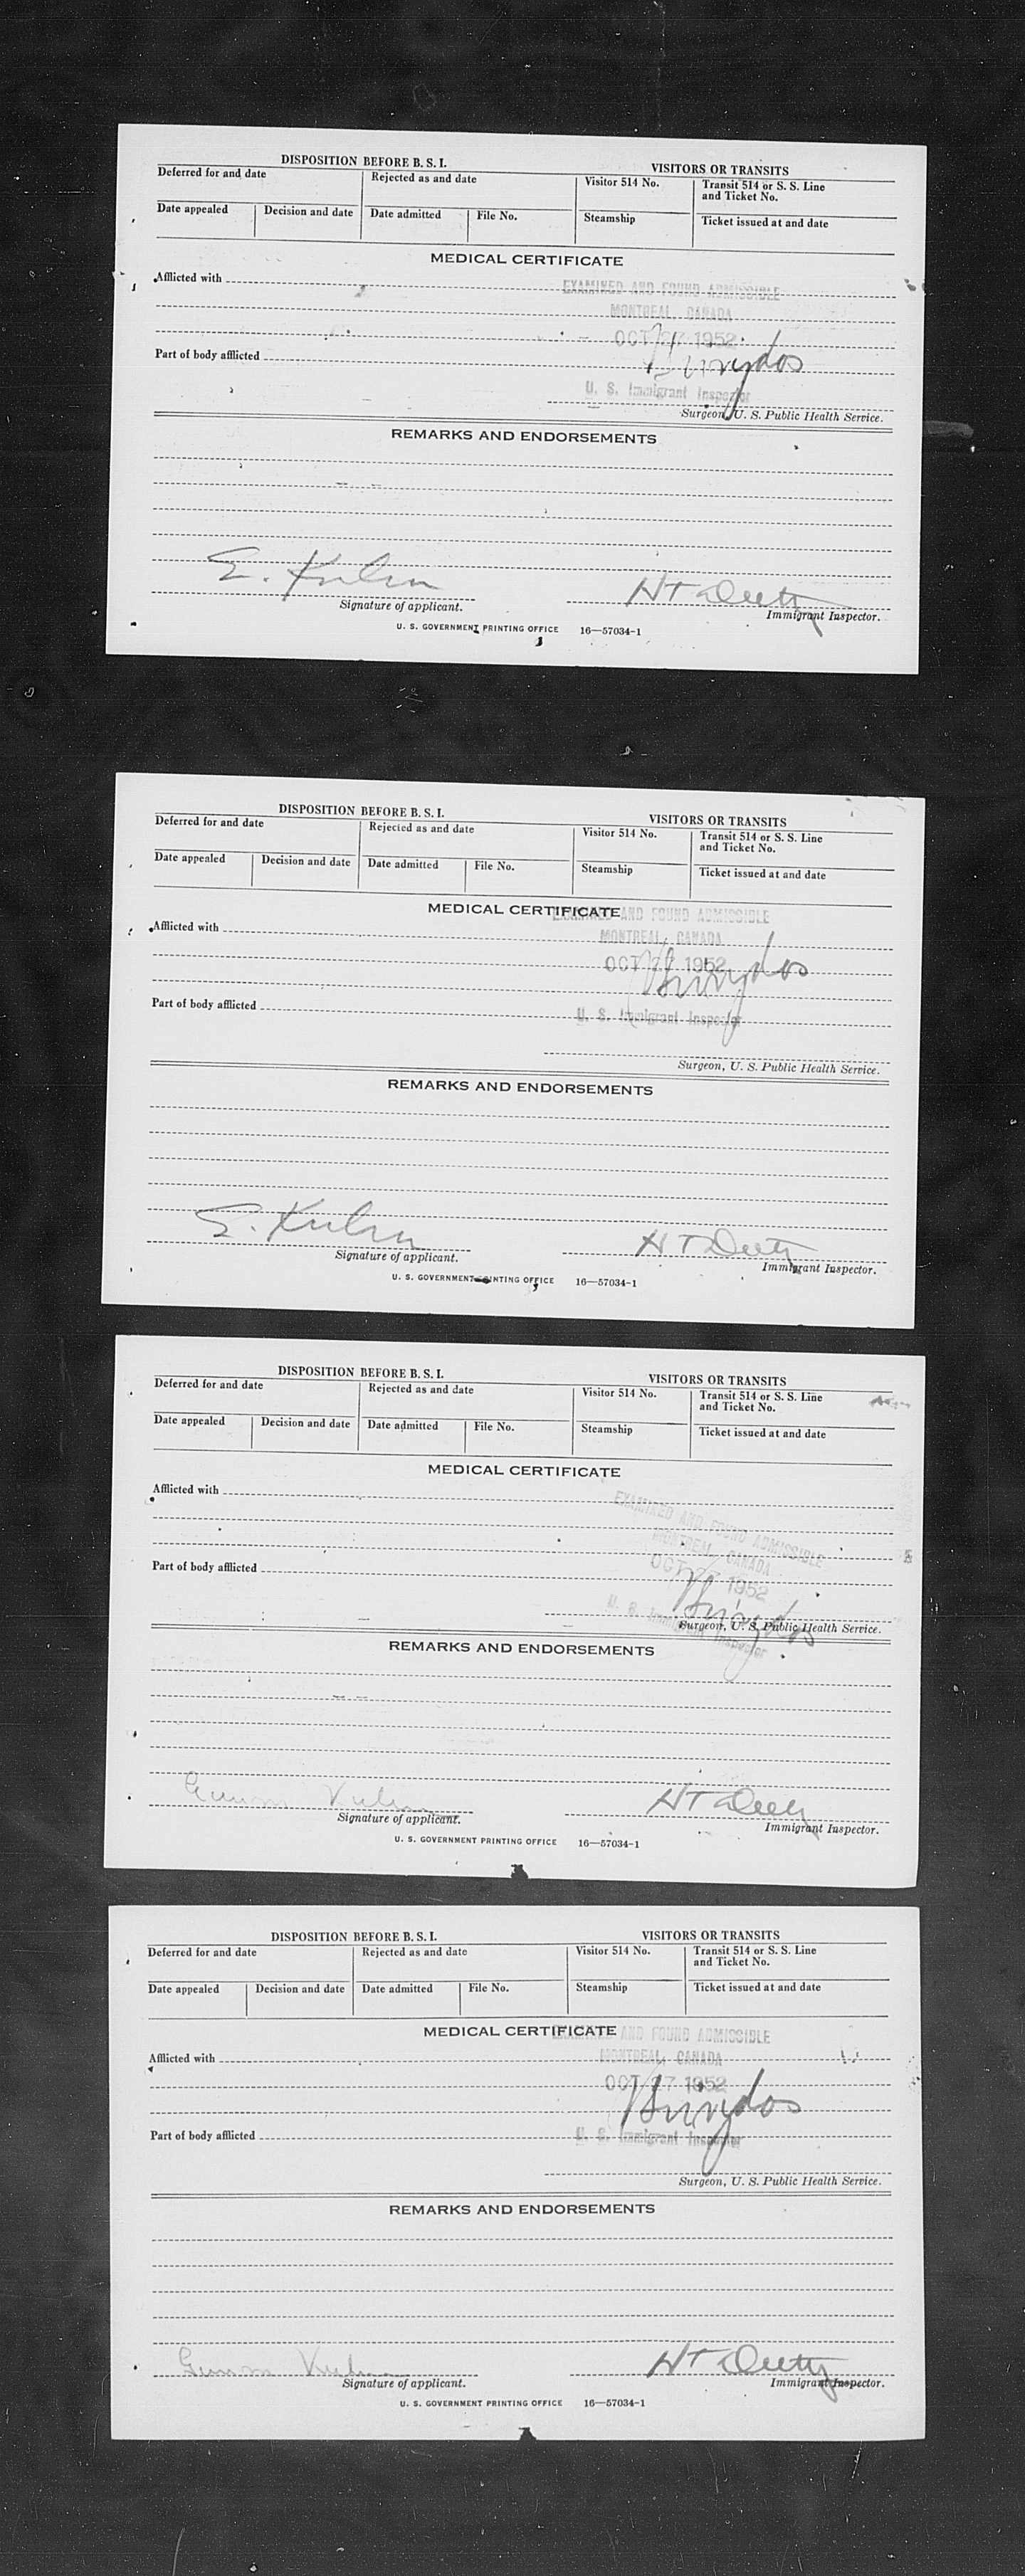 DISPOSITION BEFORE B. S. I. VISITORS OR TRANSITS
Deferred for and date Rejected as and date Visitor 514 No. Transit 514 or S. S. Line
and Ticket No.
Date appealed Decision and date Date admitted File No. Steamship Ticket issued at and date
MEDICAL CERTIFICATE
Afflicted with
EXAMINED AND FOUND ADMISSIBLE
MONTREAL, CANADA
OCT 27 1952
Part of body afflicted
U. S. Immigrant Inspector
Surgeon, U. S. Public Health Service.
REMARKS AND ENDORSEMENTS
E. Kuhn
Signature of applicant. Immigrant Inspector.
U. S. GOVERNMENT PRINTING OFFICE 16—57034-1
DISPOSITION BEFORE B. S. I. VISITORS OR TRANSITS
Deferred for and date Rejected as and date Visitor 514 No. Transit 514 or S. S. Line
and Ticket No.
Date appealed Decision and date Date admitted File No. Steamship Ticket issued at and date
MEDICAL CERTIFICATE
EXAMINED AND FOUND ADMISSIBLE
Afflicted with
MONTREAL, CANADA
OCT 27 1952
Part of body afflicted
U. S. Immigrant Inspector
Surgeon, U. S. Public Health Service.
REMARKS AND ENDORSEMENTS
E. Kuhn
Signature of applicant. Immigrant Inspector.
U. S. GOVERNMENT PRINTING OFFICE 16—57034-1
DISPOSITION BEFORE B. S. I. VISITORS OR TRANSITS
Deferred for and date Rejected as and date Visitor 514 No. Transit 514 or S. S. Line
and Ticket No.
Date appealed Decision and date Date admitted File No. Steamship Ticket issued at and date
MEDICAL CERTIFICATE
Afflicted with
EXAMINED AND FOUND ADMISSIBLE
MONTREAL, CANADA
OCT 27 1952
Part of body afflicted
U. S. Immigrant Inspector
Surgeon, U. S. Public Health Service.
REMARKS AND ENDORSEMENTS
Kuhn
Signature of applicant. Immigrant Inspector.
U. S. GOVERNMENT PRINTING OFFICE 16—57034-1
DISPOSITION BEFORE B. S. I. VISITORS OR TRANSITS
Deferred for and date Rejected as and date Visitor 514 No. Transit 514 or S. S. Line
and Ticket No.
Date appealed Decision and date Date admitted File No. Steamship Ticket issued at and date
MEDICAL CERTIFICATE
EXAMINED AND FOUND ADMISSIBLE
Afflicted with
MONTREAL, CANADA
OCT 27 1952
Part of body afflicted
U. S. Immigrant Inspector
Surgeon, U. S. Public Health Service.
REMARKS AND ENDORSEMENTS
Kuhn
Signature of applicant. Immigrant Inspector.
U. S. GOVERNMENT PRINTING OFFICE 16—57034-1